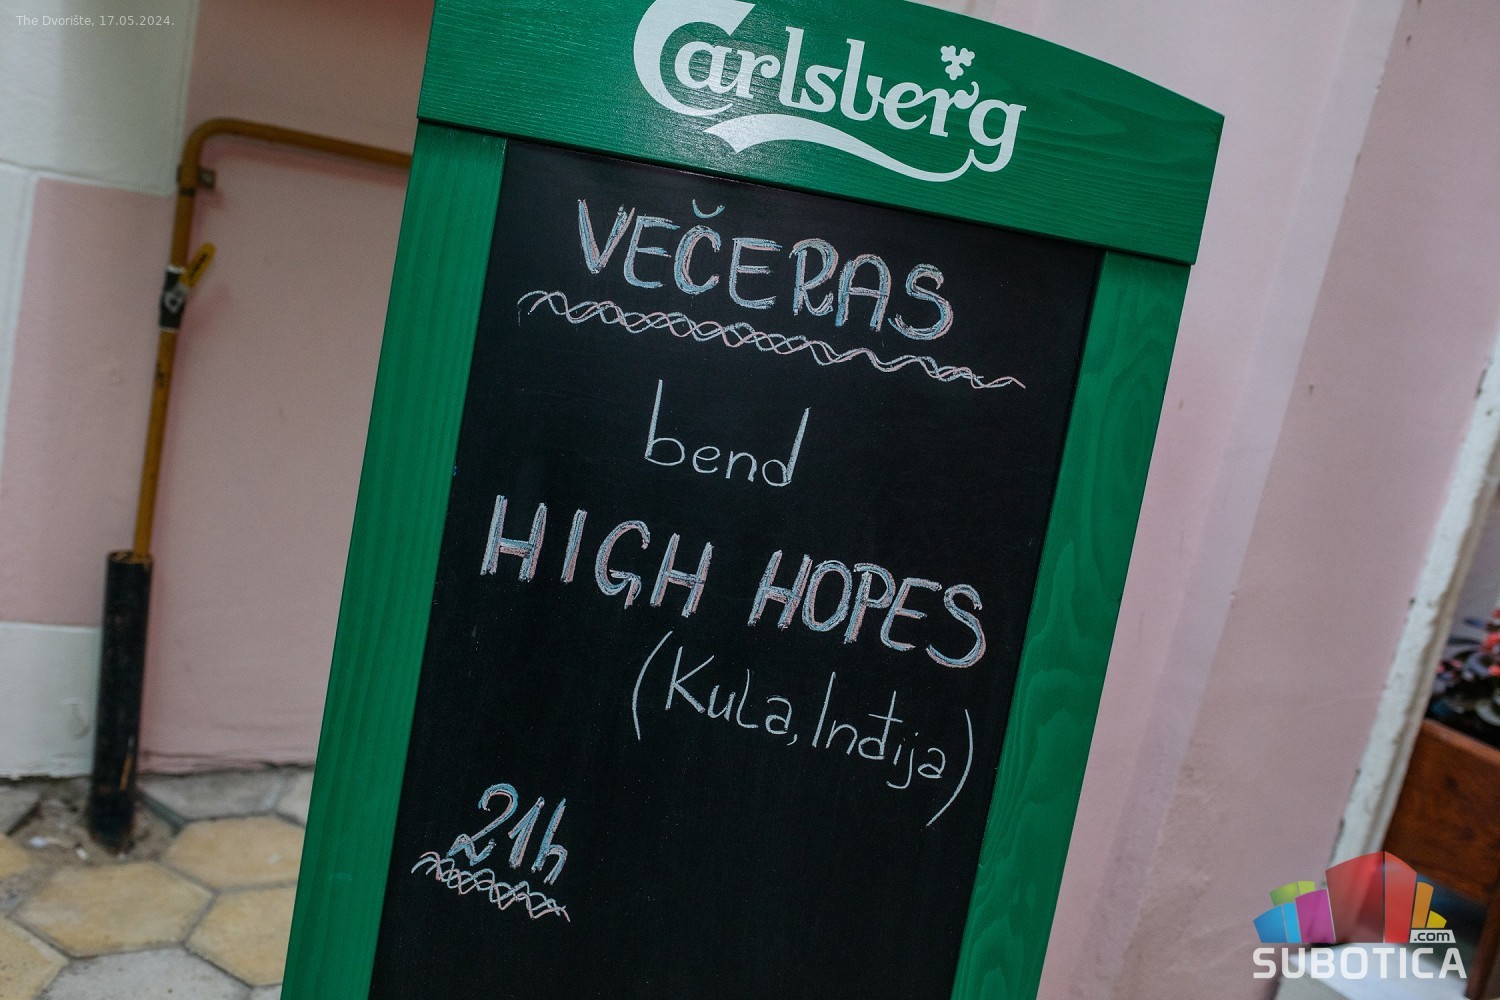 The Dvorište, 17.05.2024.
Carlsberg
VEČERAS
bend
HIGH HOPES
(Kula, Inđija)
21h
.com
SUBOTICA